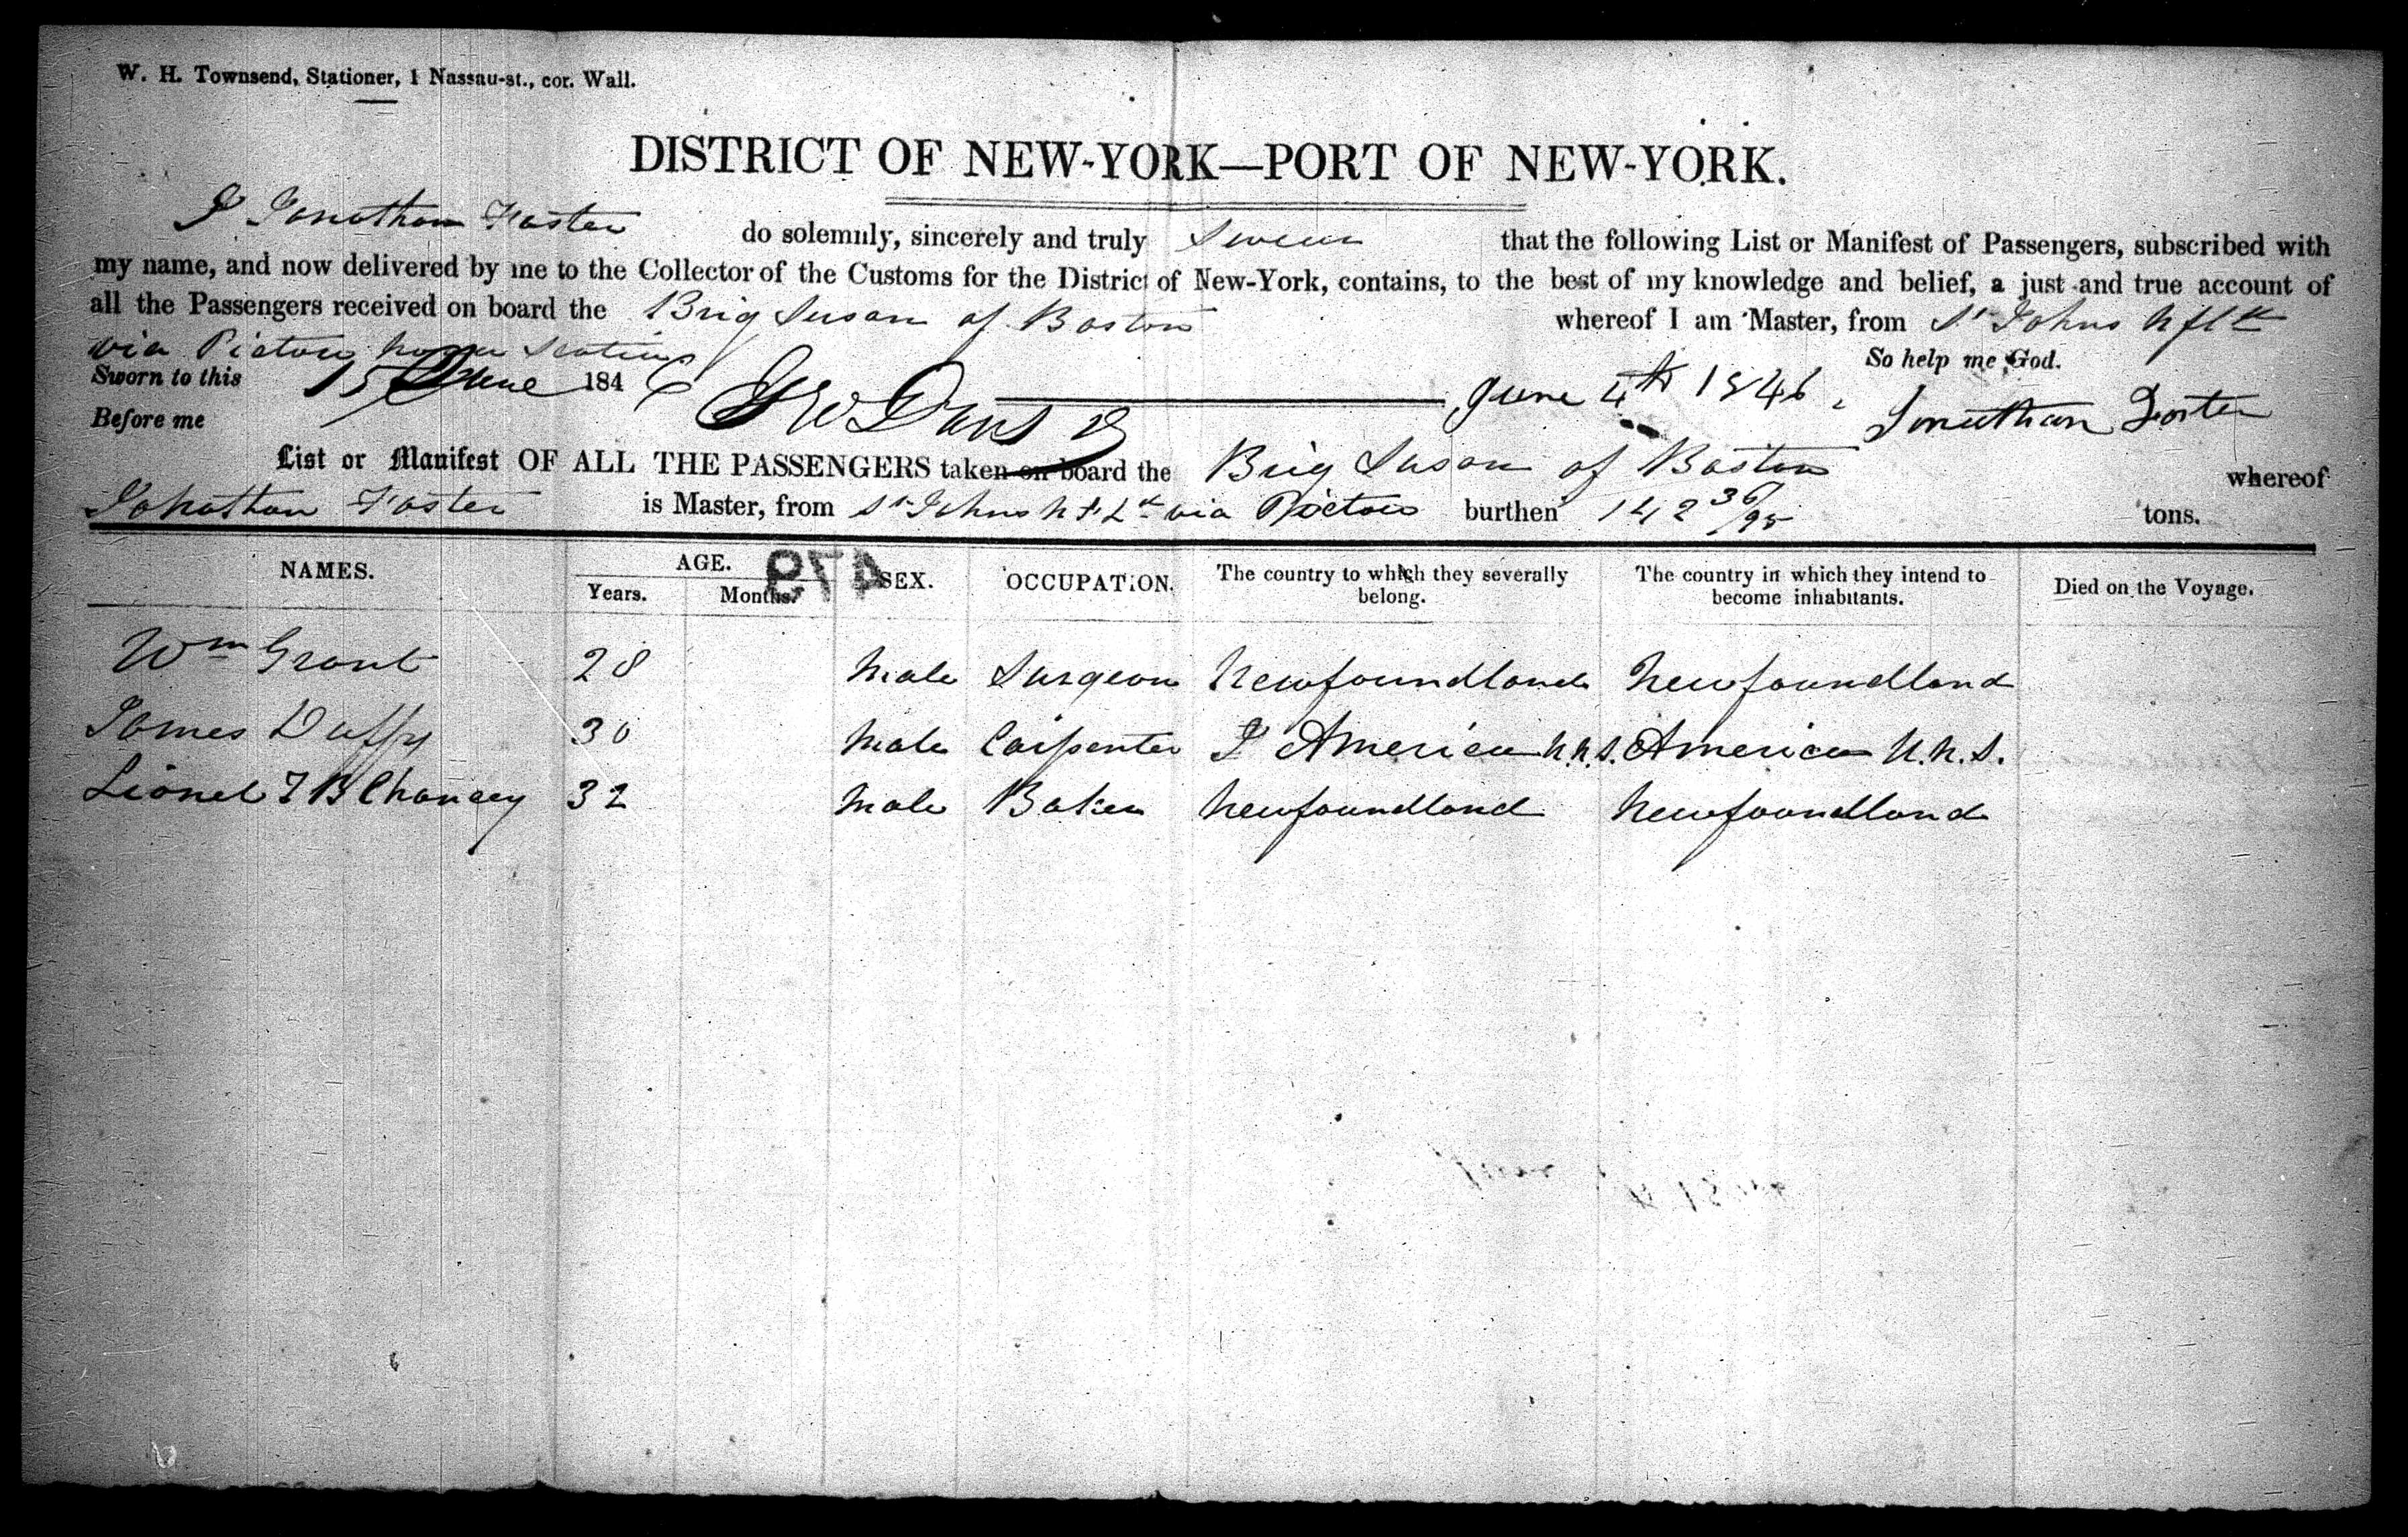 W. H. Townsend, Stationer, 1 Nassau-st., cor. Wall.
DISTRICT OF NEW-YORK—PORT OF NEW-YORK.
I Jonathan Foster do solemnly, sincerely and truly Swear that the following List or Manifest of Passengers, subscribed with
my name, and now delivered by me to the Collector of the Customs for the District of New-York, contains, to the best of my knowledge and belief, a just and true account of
all the Passengers received on board the Brig Susan of Boston whereof I am Master, from St Johns Nfld
via Pictou Nova Scotia So help me God.
Sworn to this 15 June 1846 June 4th 1846. Jonathan Foster
Before me
List or Manifest OF ALL THE PASSENGERS taken on board the Brig Susan of Boston whereof
Jonathan Foster is Master, from St Johns N F Ld via Pictou burthen 142 36/95 tons.
NAMES. AGE. 479 SEX. OCCUPATION. The country to which they severally belong. The country in which they intend to become inhabitants. Died on the Voyage.
Years. Months.
Wm Grant 28 Male Surgeon Newfoundland Newfoundland
James Duffy 30 Male Carpenter America America
Lionel T B Chancey 32 Male Baker Newfoundland Newfoundland